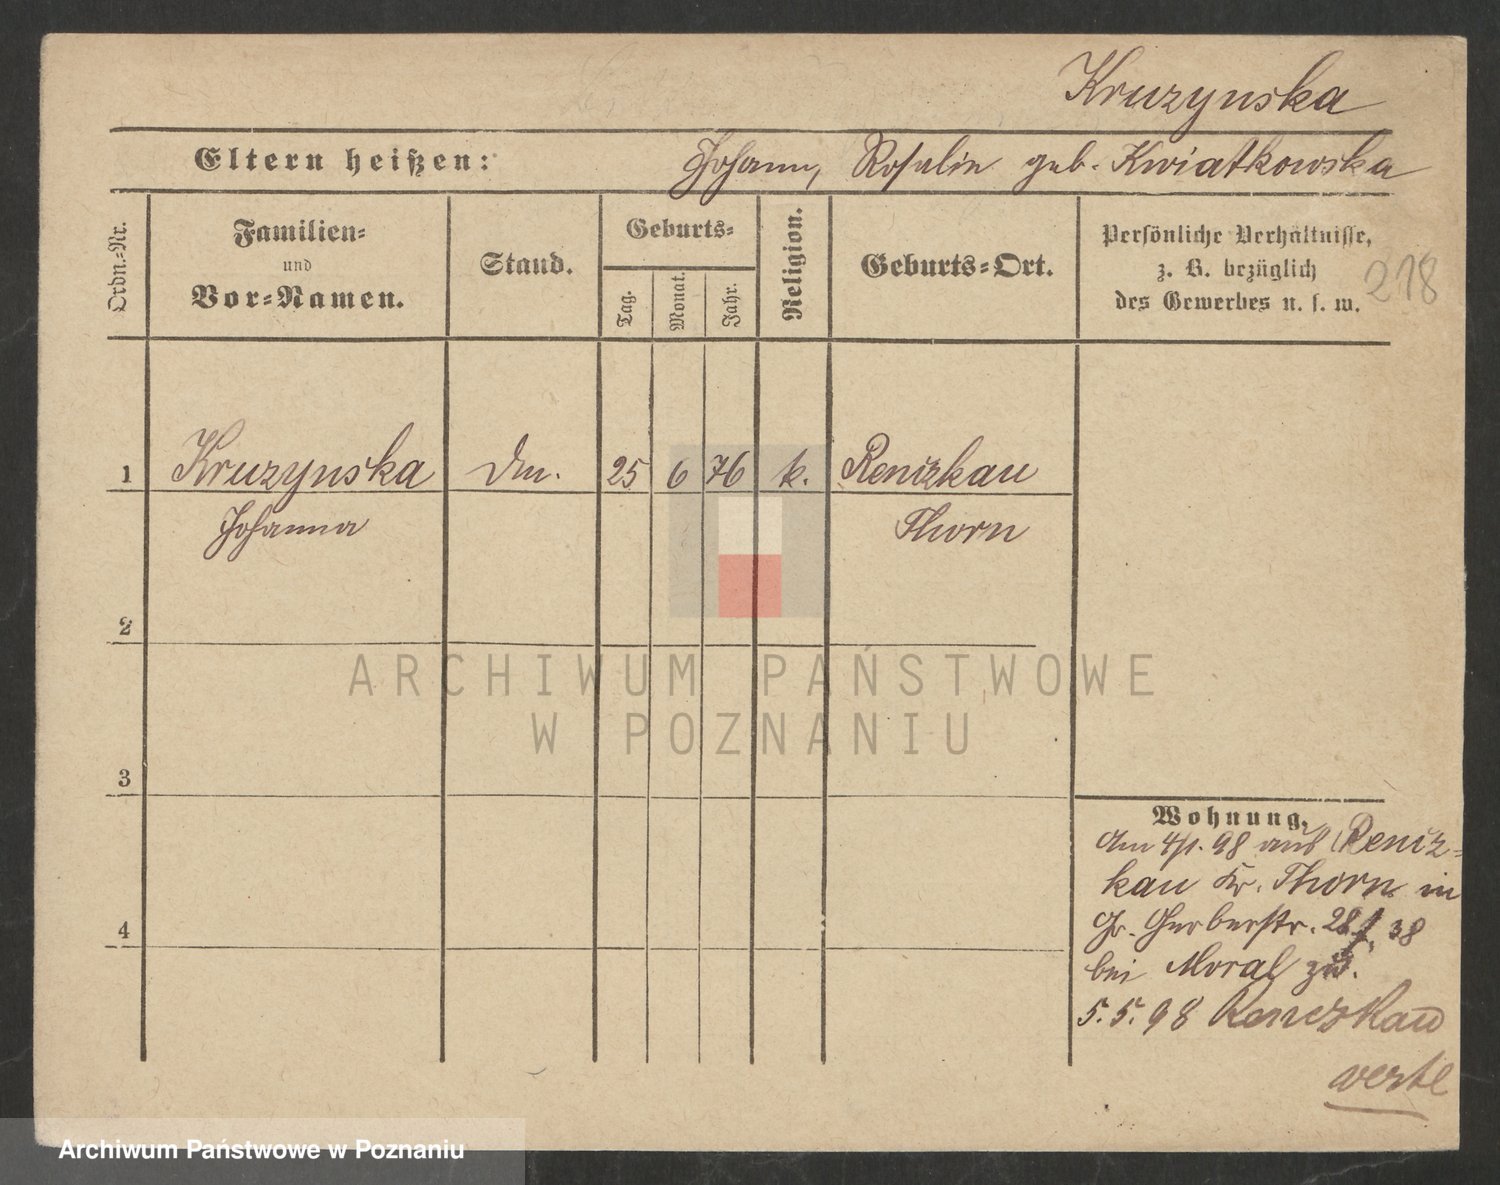 Kruzynska
Eltern heißen: Johann, Rosalie geb. Kwiatkowska
Ordn.-Nr.
Familien-
und
Vor-Namen.
Stand.
Geburts-
Tag.
Monat.
Jahr.
Religion.
Geburts-Ort.
Persönliche Verhältnisse,
z. B. bezüglich
des Gewerbes u. s. w.
218
1 Kruzynska 25 6 76 k. Renczkau
Johanna Thorn
2
3
4
Wohnung.
Am 4/1. 98 aus Rencz-
kau Kr. Thorn in
Gr. Gerberstr. 38
bei Moral zu.
5.5.98 Renczkau
verte
ARCHIWUM PAŃSTWOWE
W POZNANIU
Archiwum Państwowe w Poznaniu